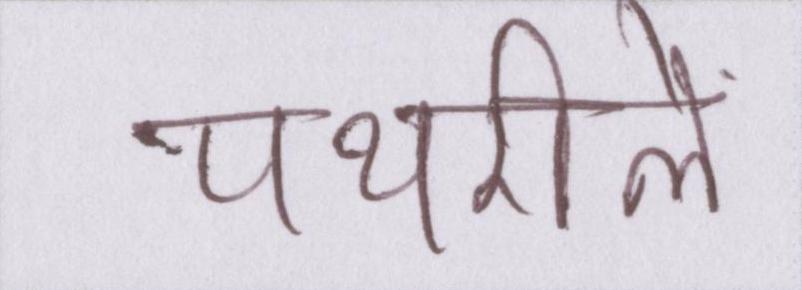 पथरीलें